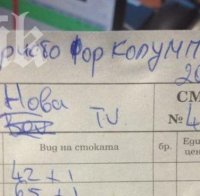 Христо Фор Колумм
20
Нова TV
СМ
№ 4
Вид на стоката бр. Еди
цен
42 + 1
65 + 1